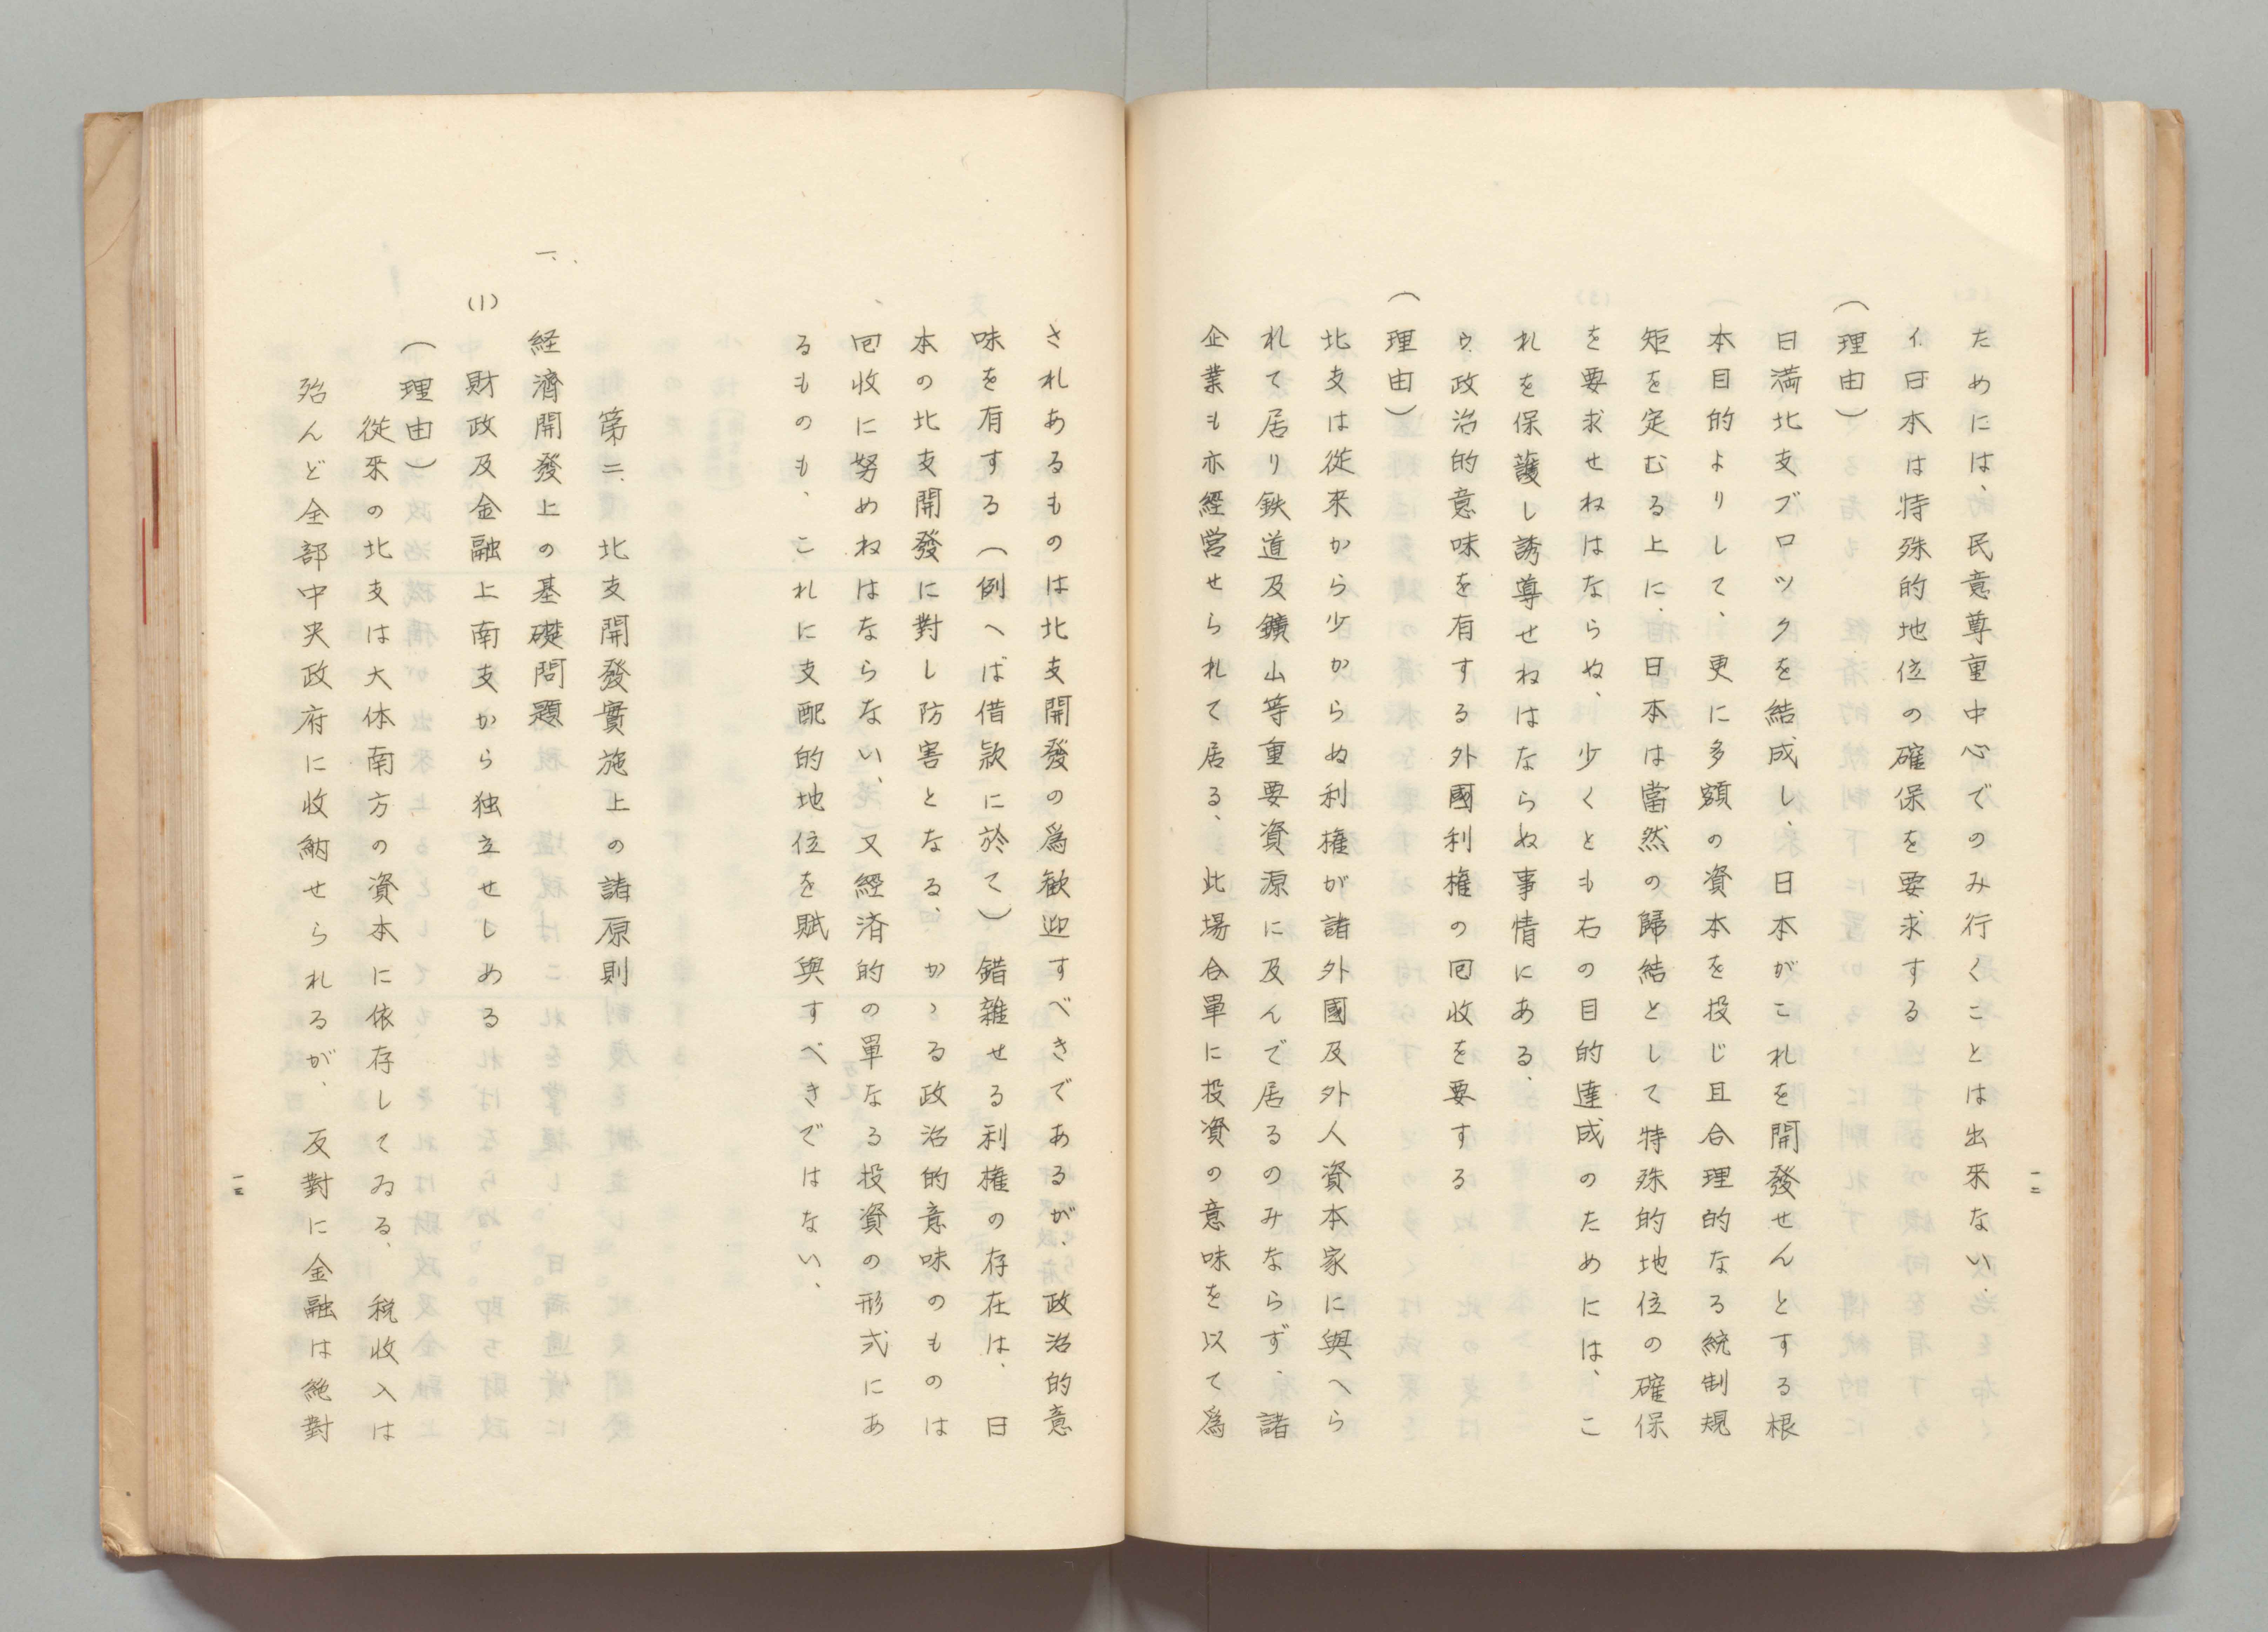 ためには、民意尊重中心でのみ行くことは出来ない.
イ.日本は特殊的地位の確保を要求する
（理由）
日満北支ブロックを結成し、日本がこれを開發せんとする根
本目的よりして、更に多額の資本を投じ且合理的なる統制規
矩を定むる上に、日本は當然の歸結として特殊的地位の確保
を要求せねはならぬ、少くとも右の目的達成のためには、こ
れを保護し誘導せねはならぬ事情にある.
ウ.政治的意味を有する外國利権の回收を要する
（理由）
北支は從来から少からぬ利權が諸外國及外人資本家に與へら
れて居り鉄道及鑛山等重要資源に及んで居るのみならず、諸
企業も亦経営せられて居る、此場合單に投資の意味を以て爲
一二
されあるものは北支開發の爲歓迎すべきであるが、政治的意
味を有する（例へば借款に於て）錯雜せる利權の存在は、日
本の北支開發に對し防害となる、かゝる政治的意味のものは
回收に努めねはならない、又經済的の單なる投資の形式にあ
るものも、これに支配的地位を賦與すべきではない、
第二、北支開發實施上の諸原則
一、経濟開發上の基礎問題
(1) 財政及金融上南支から独立せしめる
（理由）
從來の北支は大体南方の資本に依存してゐる、税收入は
殆んど全部中央政府に收納せられるが、反對に金融は絶對
一三